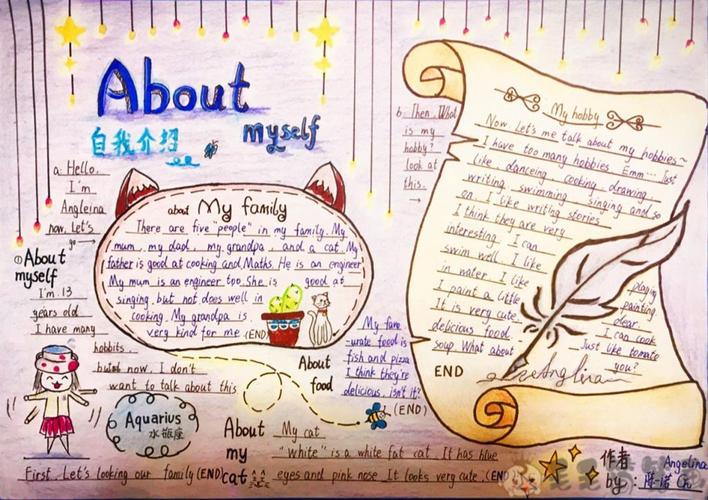 About
myself
自我介绍
a. Hello.
I'm
Angleina
now. Let's
go →
① About
myself
I'm 13
years old
I have many
hobbits.
but now. I don't
want to talk about this
Aquarius
水瓶座
First. Let's looking our family (END)
about My family
There are five "people" in my family. My
mum. my dad. my grandpa. and a cat. My
father is good at cooking and Maths. He is an engineer
My mum is an engineer too. She is good at
singing. but not does well in
cooking. My grandpa is
very kind for me (END)
About
food
My favo
-urate food is
fish and pizza
I think they're
delicious. isn't it?
(END)
About
my
cat
My cat
"white" is a white fat cat. It has blue
eyes and pink nose. It looks very cute. (END)
b. Then. What
is my
hobby?
look at
this. →
My hobby
Now Let's me talk about my hobbies~
I have too many hobbies. Emm... Just
like danceing cooking drawing
writing swimming singing and so
on. I like writing stories
I think they are very
interesting. I can
swim well. I like
playing
in water. I like
painting
I paint a little
clear.
It is very cute.
I can cook
delicious food.
Just like tomato
soup. What about
you?
END
Anglina
作者
by:
Angelina